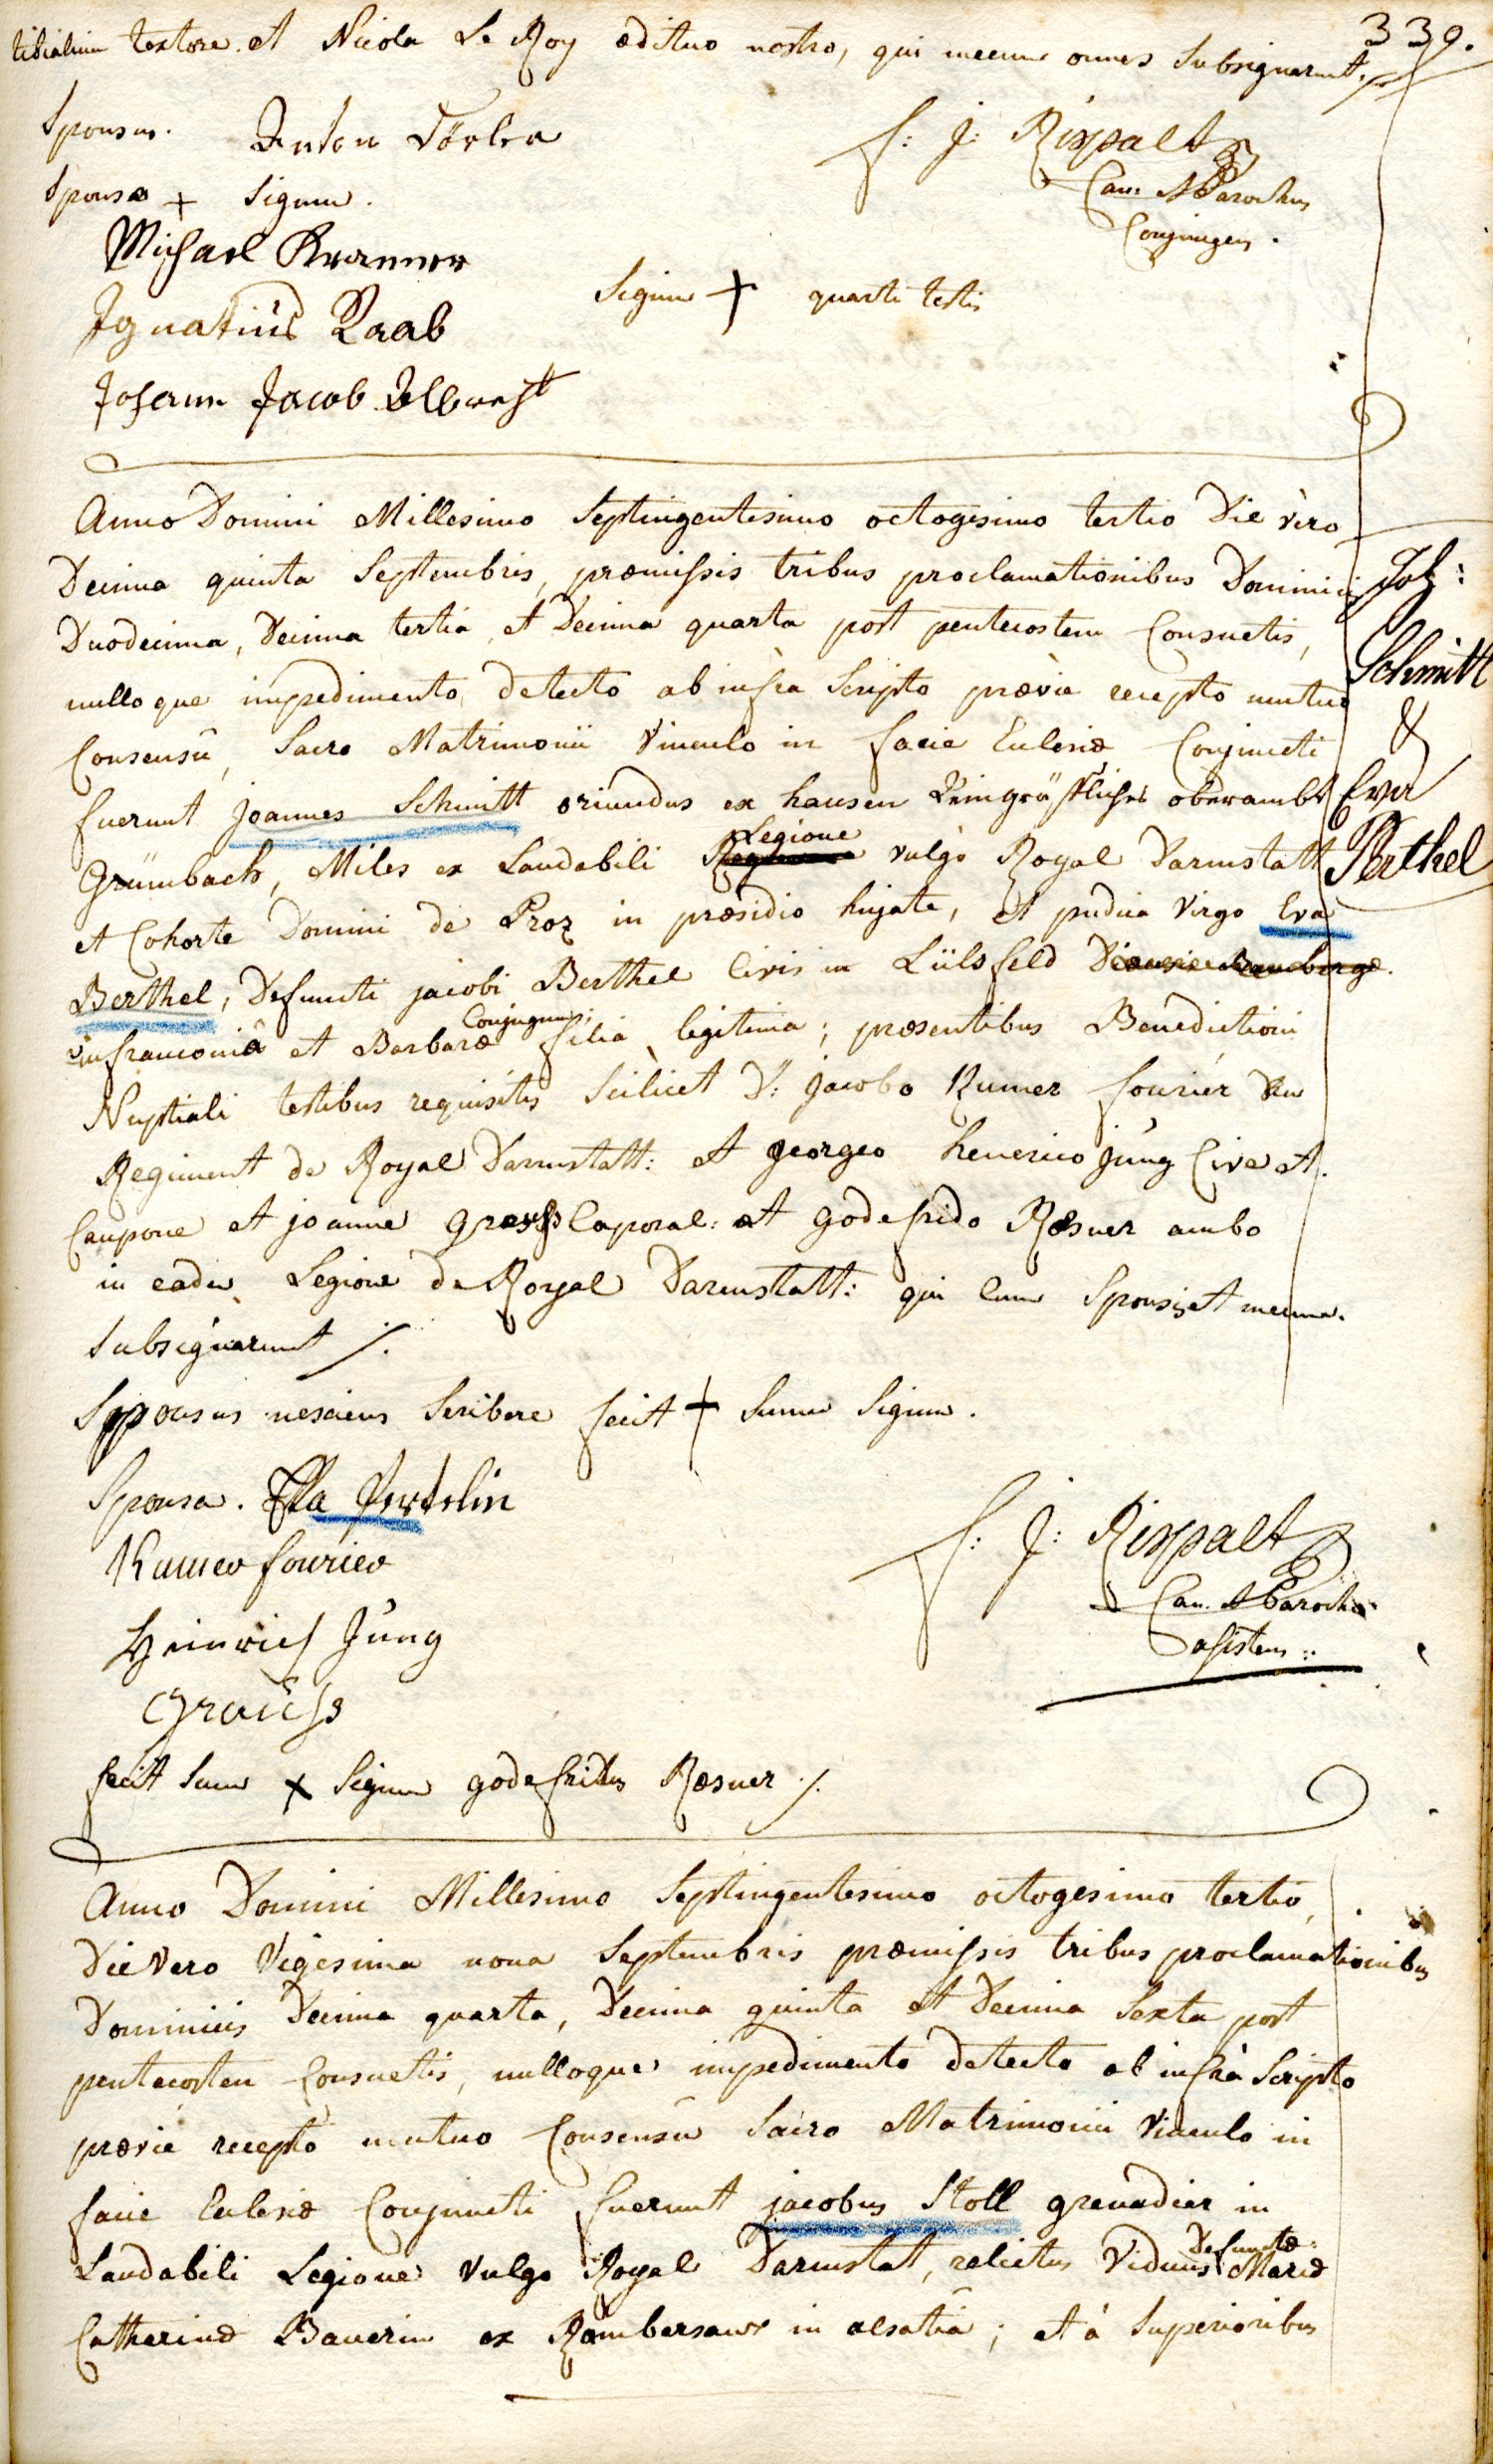 339.
tibialium textore. et Nicola Le Roy ædituo nostro, qui mecum omnes subsignarunt.
Sponsus. Anton
F: J: Rispalt
Can: et Parochus
Conjungens.
Sponsæ + signum.
Michael Krammer
Signum + quarti testis
Ignatius Raab
Johann Jacob Albrecht
Anno Domini Millesimo Septingentesimo octogesimo tertio Die vero
Decima quinta Septembris, præmissis tribus proclamationibus Dominicis
Duodecima, Decima tertia, et Decima quarta post pentecostem Consuetis,
nulloque impedimento detecto ab infra Scripto prævie recepto mutuo
Consensu, Sacro Matrimonii Vinculo in facie Eclesiæ Conjuncti
fuerunt joannes Schmitt oriundus ex hausen oberambt
Grumbach, Miles ex Laudabili Legione vulgò Royal Darmstatt
et Cohorte Domini de Proz in præsidio hujate, et pudica Virgo Eva
Berthel, Defuncti jacobi Berthel Civis in Lülsfeld
in franconiâ et Barbaræ Conjugum filia legitima; præsentibus Benedictioni
Nuptiali testibus requisitis Scilicet D: jacobo Kumer fourier
Regiment de Royal Darmstatt: et georgeo henerico jung Cive et
Caupone et joanne Grauss Caporal: et godefrido Rœsner ambo
in eadem Legione de Royal Darmstatt: qui cum Sponsis et mecum
subsignarunt ./.
Joh:
Schmitt
&
Eva
Perthel
Sponsus nesciens Scribere fecit + suum signum.
Sponsa. Efa Pertelin
Kumer fourier
F: J: Rispalt
Can. et Parochus
assistens :.
Heinrich Jung
Grauss
fecit suum x signum godefridus Rœsner ./.
Anno Domini Millesimo Septingentesimo octogesimo tertio,
Die Vero Vigesima nona Septembris præmissis tribus proclamationibus
Dominicis Decima quarta, Decima quinta et Decima Sexta post
pentecosten Consuetis, nulloque impedimento detecto ab infra Scripto
prævie recepto mutuo Consensu Sacro Matrimonii Vinculo in
facie Eclesiæ Conjuncti fuerunt jacobus Stoll grenadier in
Laudabili Legione vulgo Royal Darmstat, relictus Viduus Defunctæ Mariæ
Catherinæ Bauerin ex in alsatia; et à Superioribus